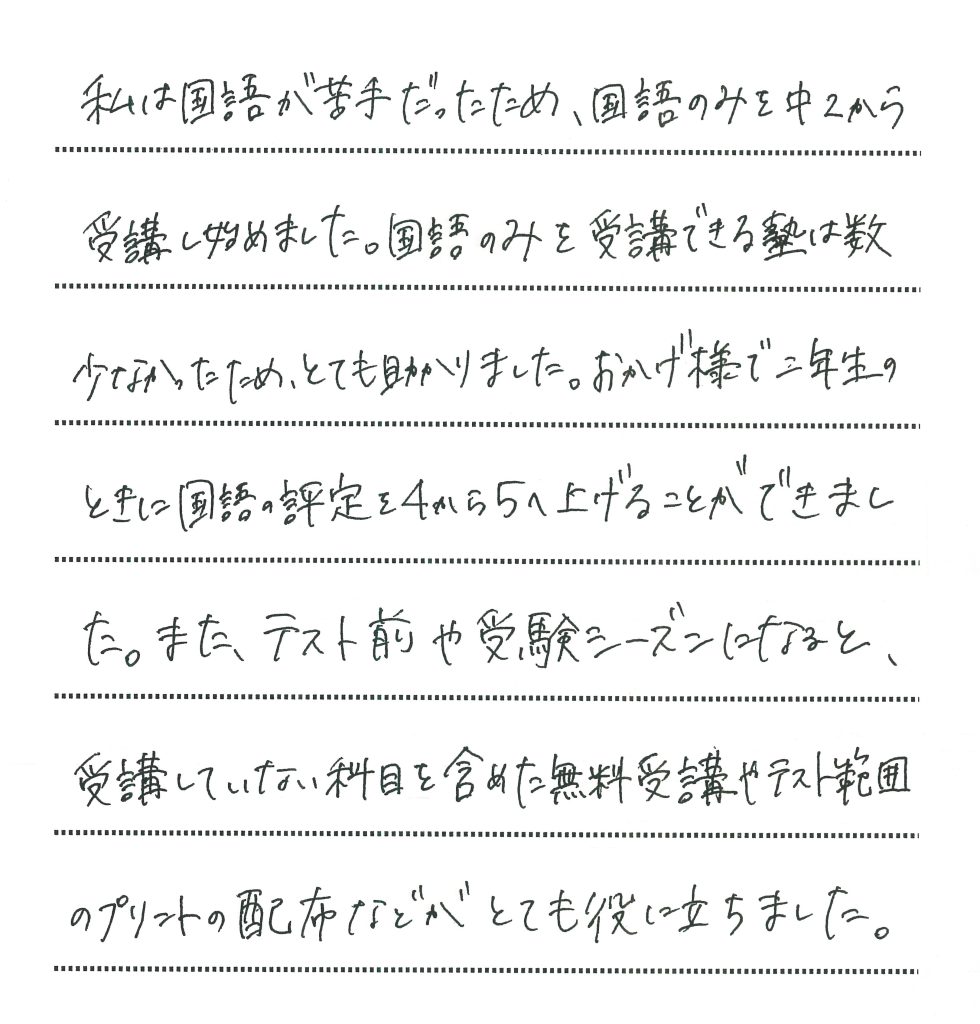 私は国語が苦手だったため、国語のみを中2から
受講し始めました。国語のみを受講できる塾は数
少なかったため、とても助かりました。おかげ様で三年生の
ときに国語の評定を4から5へ上げることができまし
た。また、テスト前や受験シーズンになると、
受講していない科目を含めた無料受講やテスト範囲
のプリントの配布などがとても役に立ちました。